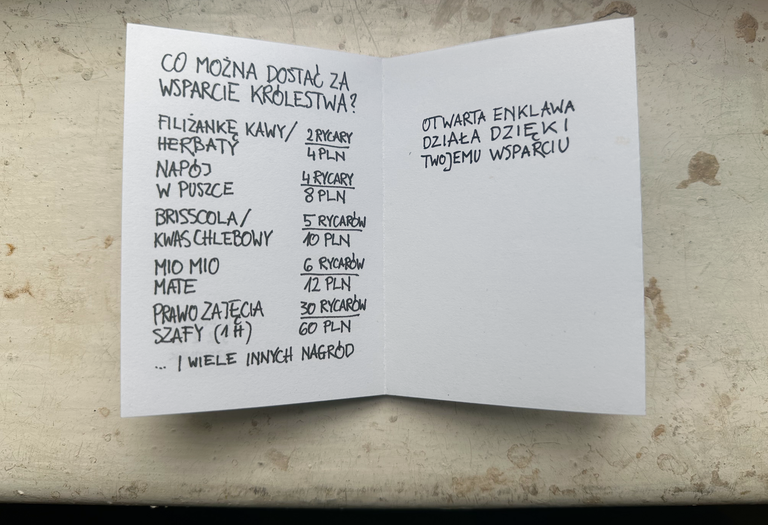 CO MOŻNA DOSTAĆ ZA
WSPARCIE KRÓLESTWA?
FILIŻANKĘ KAWY/
HERBATY
2 RYCARY
4 PLN
NAPÓJ
W PUSZCE
4 RYCARY
8 PLN
BRISSCOLA/
KWAS CHLEBOWY
5 RYCARÓW
10 PLN
MIO MIO
MATE
6 RYCARÓW
12 PLN
PRAWO ZAJĘCIA
SZAFY (1H)
30 RYCARÓW
60 PLN
... I WIELE INNYCH NAGRÓD
OTWARTA ENKLAWA
DZIAŁA DZIĘKI
TWOJEMU WSPARCIU